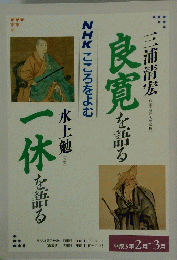 三浦清宏
良寛を語る
NHK こころをよむ
水上勉
一休を語る
平成3年2月-3月